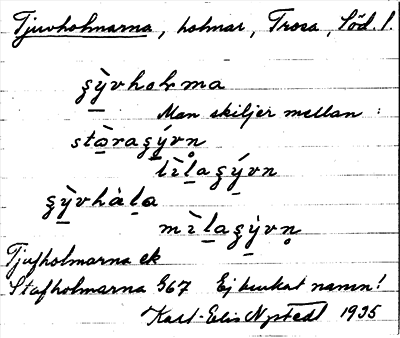 Tjuvholmarna, holmar, Trosa, Söd. l.
ʂỳvholrma
Man skiljer mellan:
stàraʂývn
lìlaʂývn
ʂỳvhàla
mìlaʂývn
Tjufholmarna ek
Stafholmarna G67 Ej brukat namn!
Karl-Elis Nystedt 1935